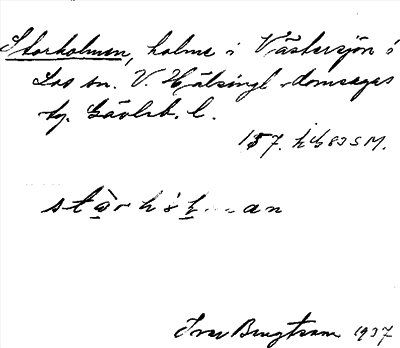 Storholmen, holme i Västersjön i
Los sn. V. Hälsingl. domsagas
tg. Gävleb. l.
157.
st hö man
Ivar Bengtsson 1937